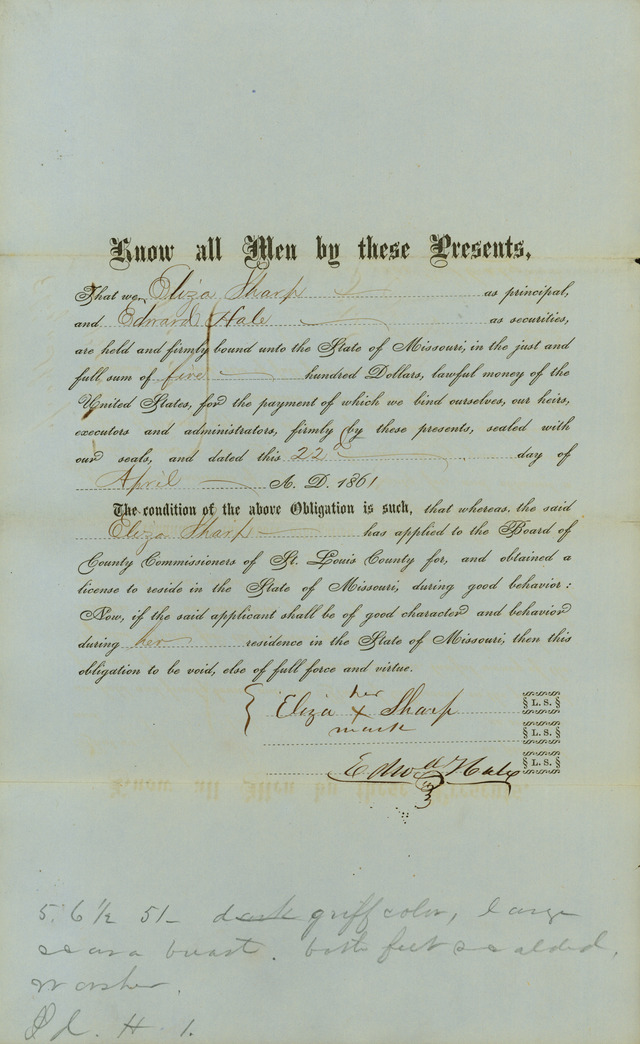 Know all Men by these Presents,
That we, Eliza Sharp as principal,
and Edward Hale as securities,
are held and firmly bound unto the State of Missouri, in the just and
full sum of five hundred Dollars, lawful money of the
United States, for the payment of which we bind ourselves, our heirs,
executors and administrators, firmly by these presents, sealed with
our seals, and dated this 22d day of
April A. D. 1861
The condition of the above Obligation is such, that whereas, the said
Eliza Sharp has applied to the Board of
County Commissioners of St. Louis County for, and obtained a
license to reside in the State of Missouri, during good behavior:
Now, if the said applicant shall be of good character and behavior
during her residence in the State of Missouri, then this
obligation to be void, else of full force and virtue.
her
Eliza X Sharp L. S.
mark L. S.
Edwd Hale L. S.
5. 6 1/2 51 dark griff color, large
scar breast. both feet scalded,
washer.
H. 1.